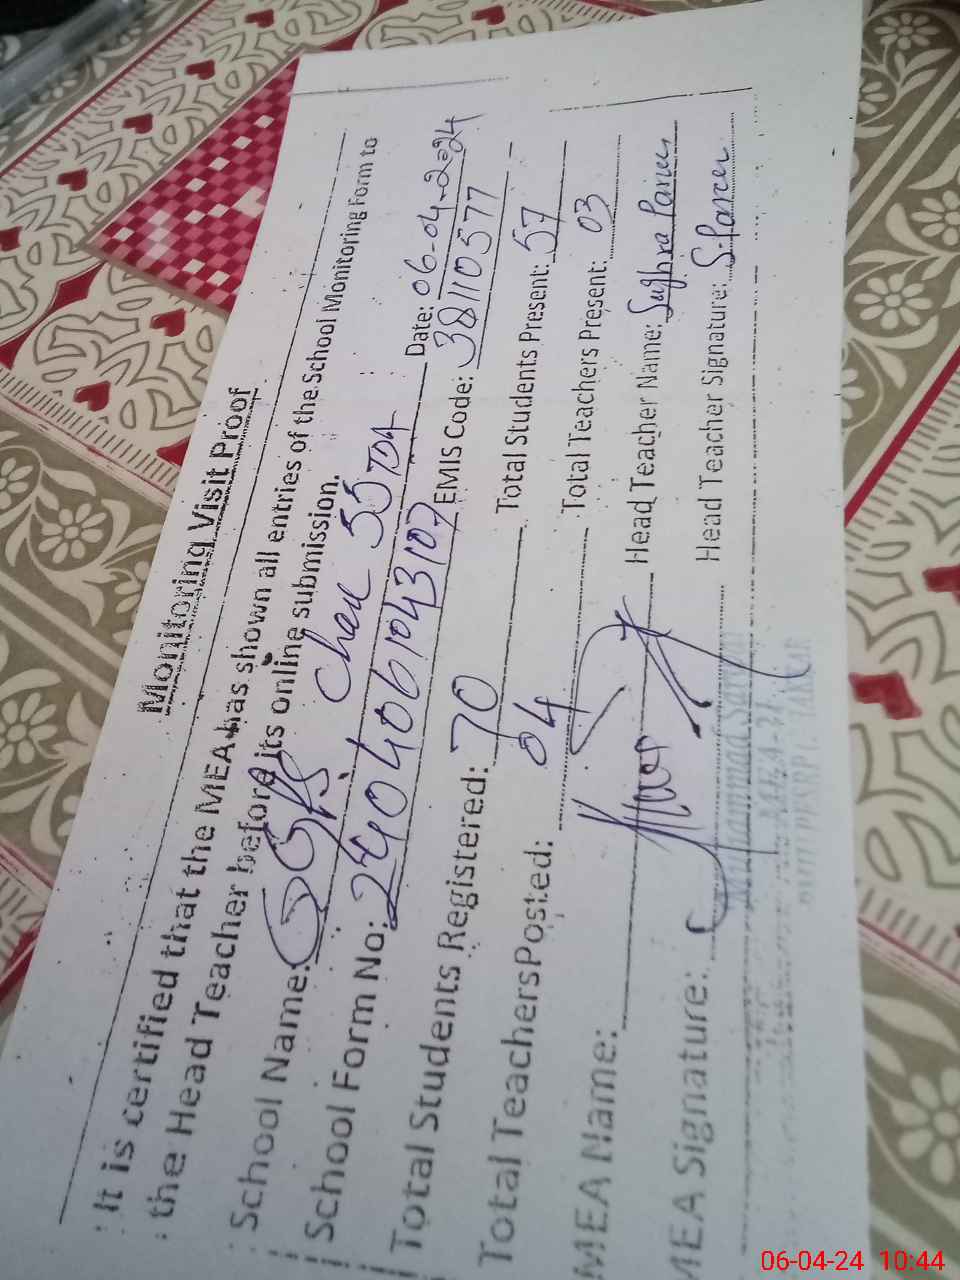 Monitoring Visit Proof
It is certified that the MEA has shown all entries of the School Monitoring Form to
the Head Teacher before its online submission.
School Name: GGPS Chak 55 TDA Date: 06-04-2024
School Form No: 2404061043107 EMIS Code: 38110577
Total Students Registered: 70 Total Students Present: 57
Total Teachers Posted: 04 Total Teachers Present: 03
MEA Name: Head Teacher Name: Sughra Parveen
MEA Signature: Head Teacher Signature: S.Parveen
Muhammad
MEA-31
06-04-24 10:44